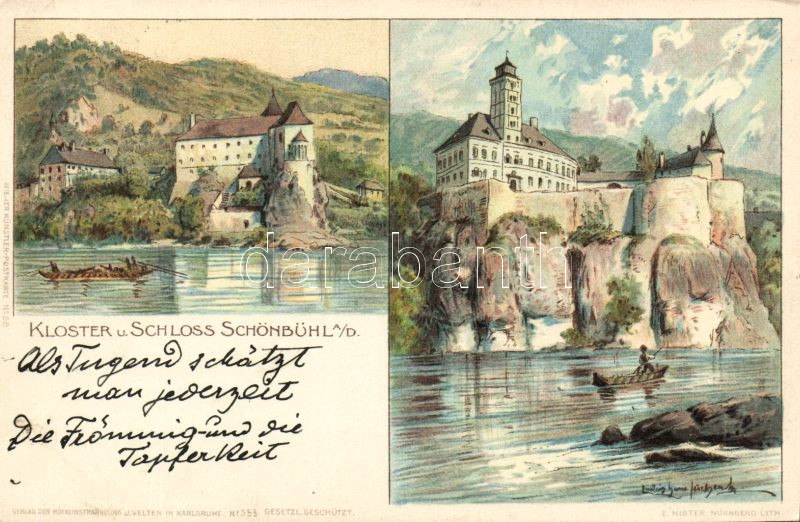 KLOSTER U. SCHLOSS SCHÖNBÜHL A/D.
Als Tugend schätzt
man jederzeit
Die Frömmig- und die
Tapferkeit
darabanth
VERLAG DER HOFKUNSTHANDLUNG J. VELTEN IN KARLSRUHE. GESETZL. GESCHÜTZT.
E. NISTER NÜRNBERG-LITH.
KÜNSTLER-POSTKARTE